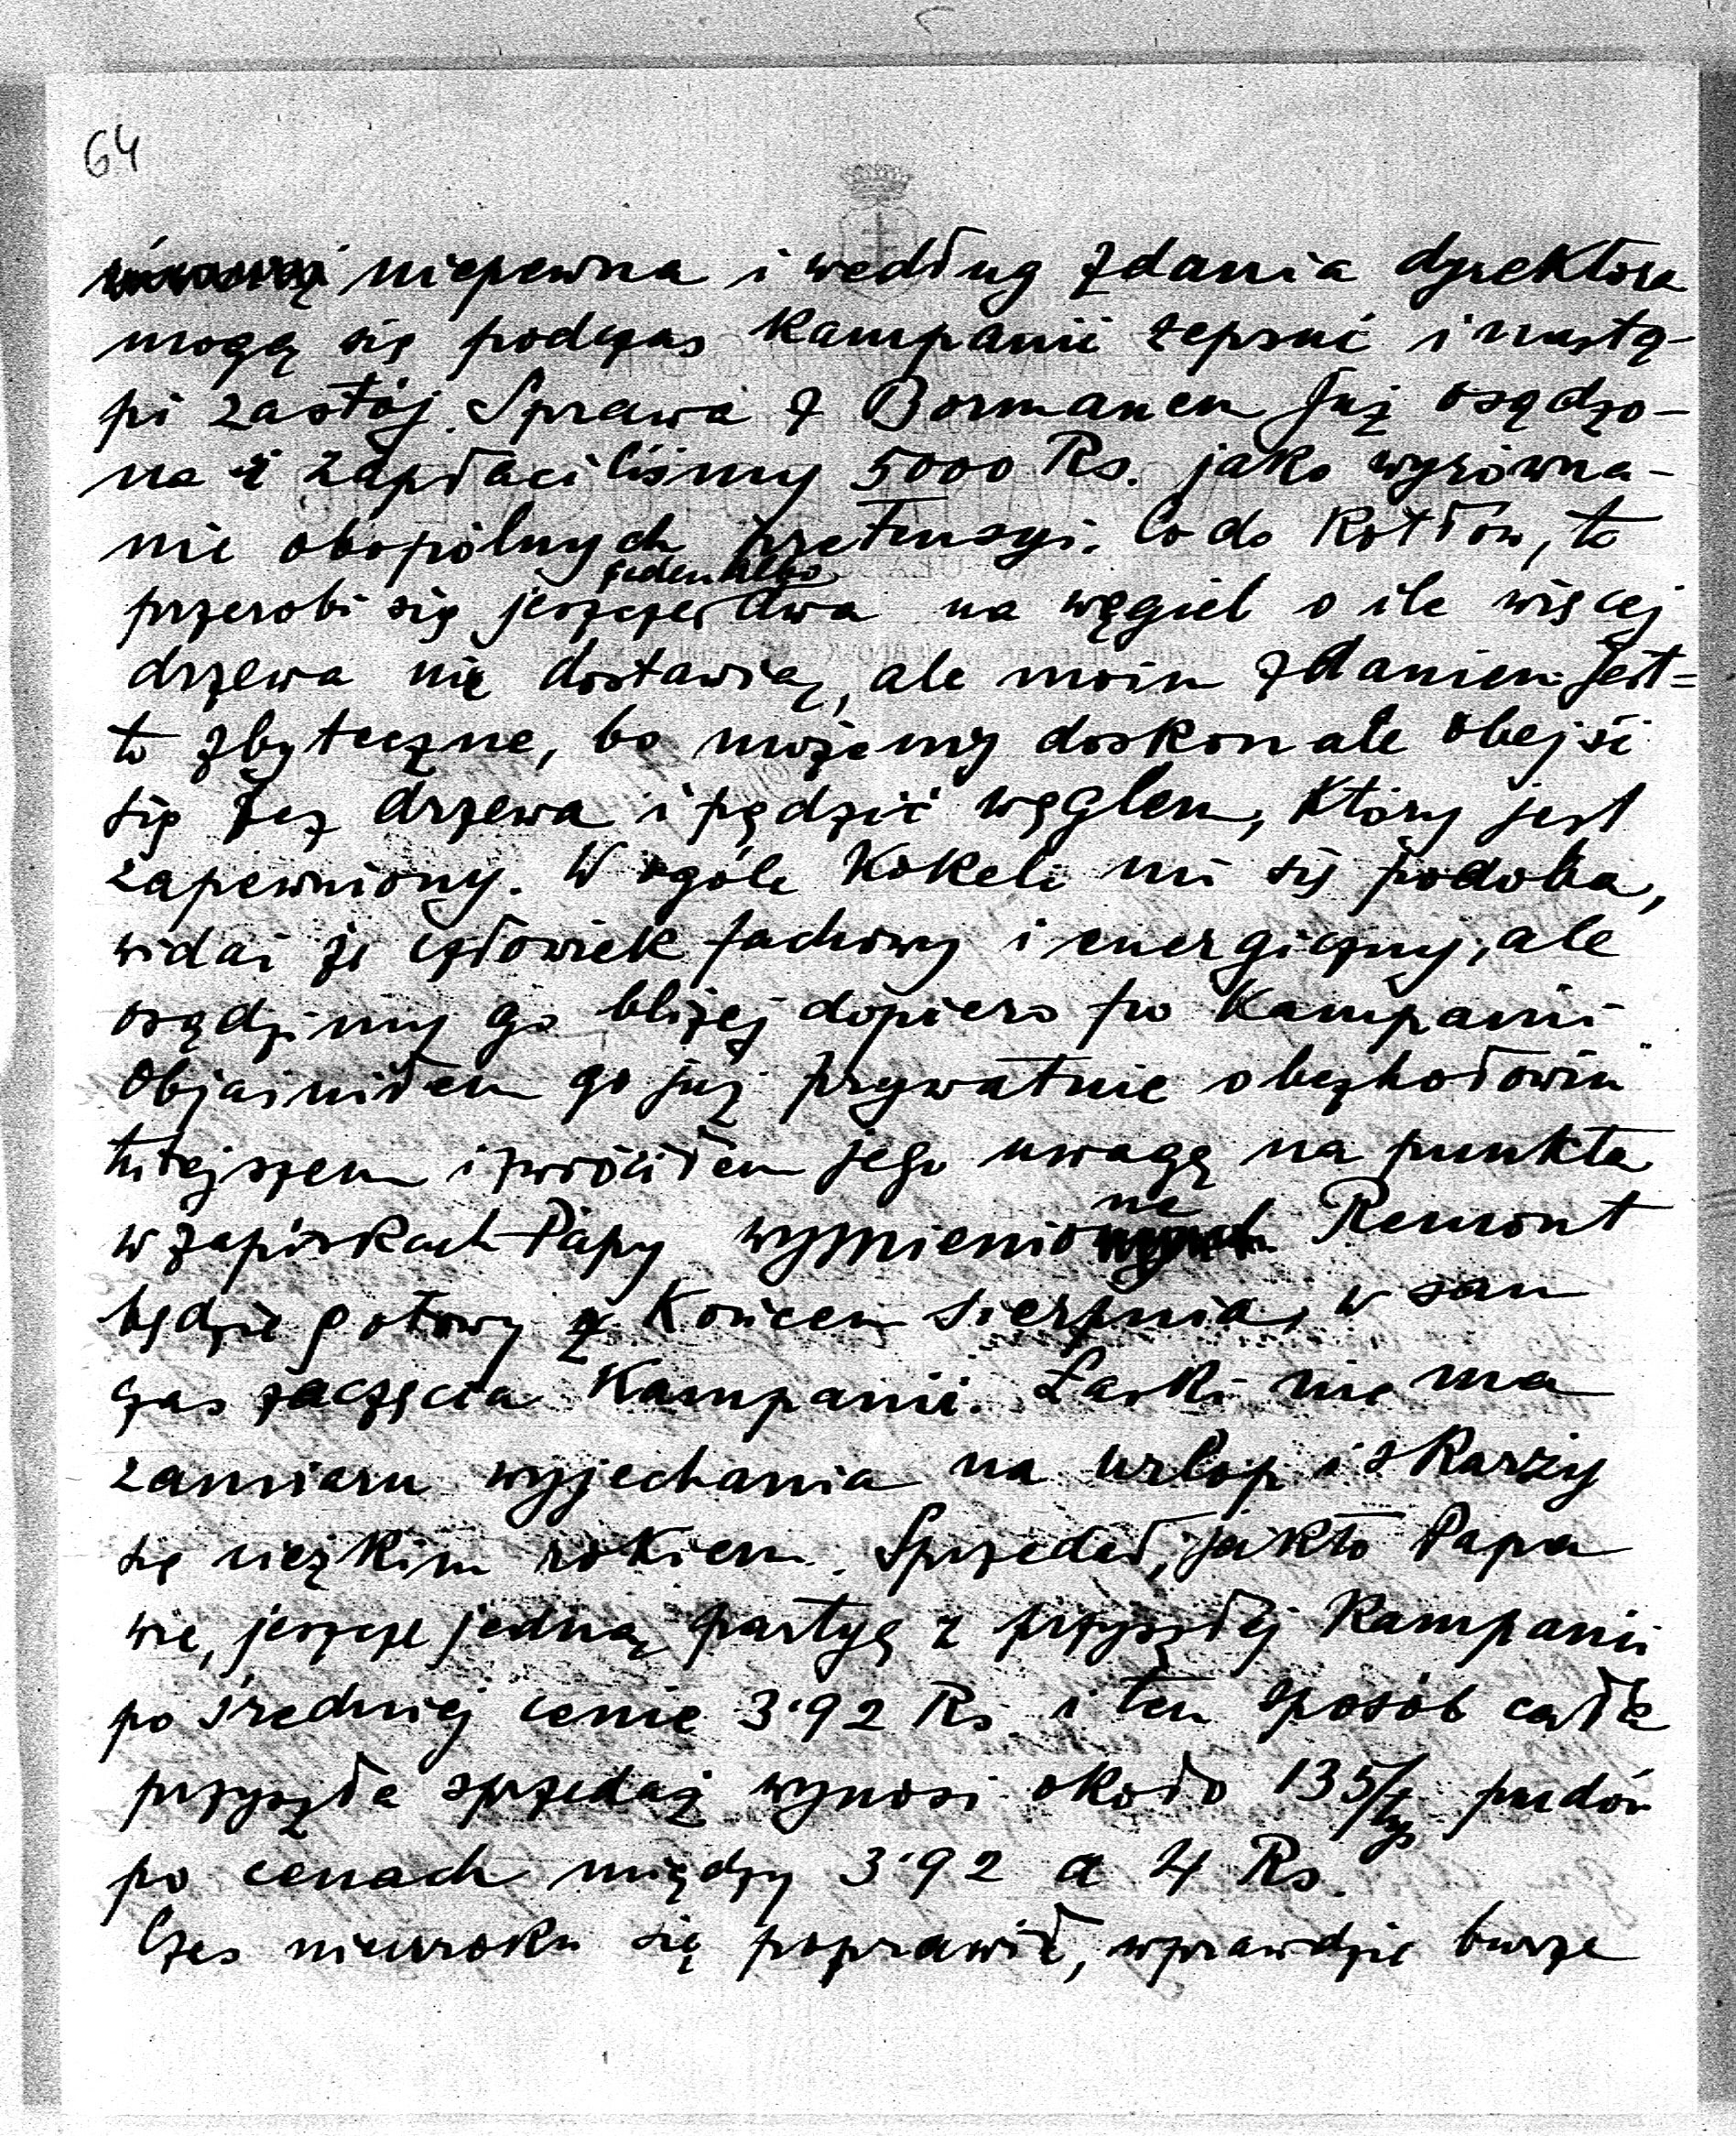 64
niepewna i według zdania dyrektora
mogą się podczas kampanii zepsuć i nastą-
pi zastój. Sprawa z Bormanem już osądzo-
na i zapłaciliśmy 5000 Rs. jako wyrówna-
nie obopólnych pretensyi. Co do kotłów, to
jeden albo
przerobi się jeszcze dwa na węgiel o ile więcej
drzewa nie dostawią, ale moim zdaniem jest=
to zbyteczne, bo możemy doskonale obejść
się bez drzewa i pędzić węglem, który jest
zapewniony. W ogóle Kokeli mi się podoba,
widać że człowiek fachowy i energiczny, ale
osądzimy go bliżej dopiero po kampanii.
Objaśniłem go już prywatnie o bezhołowiu
tutejszem i zwróciłem jego uwagę na punkta
w zapiskach Papy wymienione Remont
będzie gotowy z końcem sierpnia, w sam
czas zaczęcia kampanii. Łaski nie ma
zamiaru wyjechania na urlop i skarży
się ciężkim rokiem. Sprzedał, jak to Papa
wie, jeszcze jedną partyę z przyszłej kampanii
po średniej cenie 3·92 Rs i ten sposób cała
przyszła sprzedaż wynosi około 135/tys pudów
po cenach między 3·92 a 4 Rs.
Czas nieuroku się poprawił, wprawdzie burze